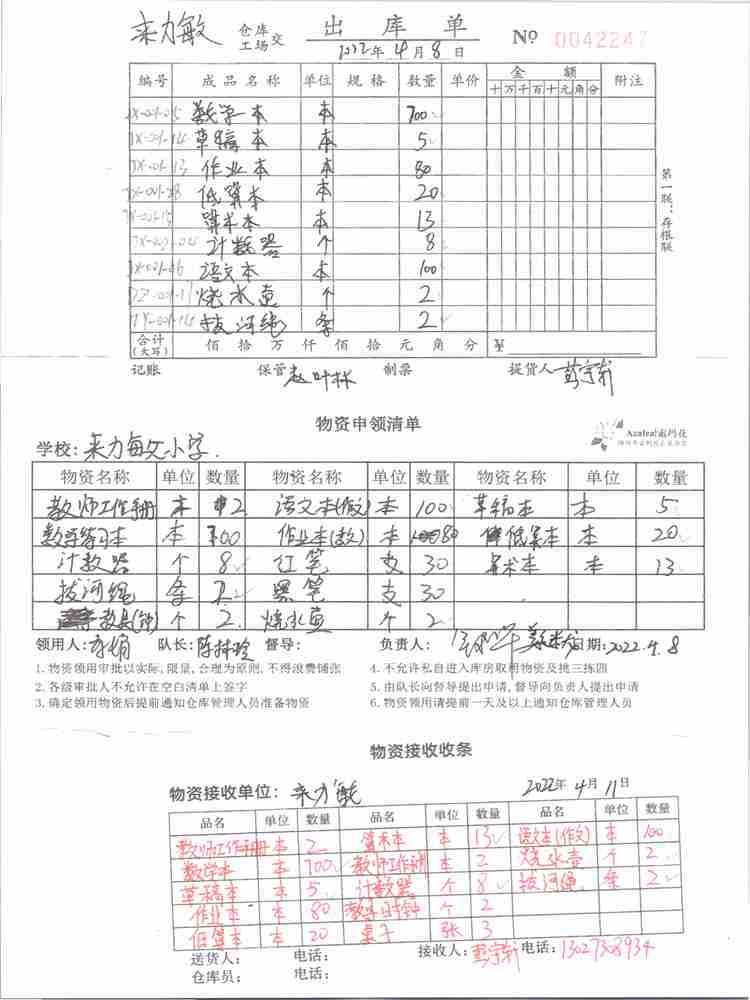 来力敏 仓库工场交 出库单 № 0042247
2022年4月8日
编号 成品名称 单位 规格 数量 单价 金额 附注
十万千百十元角分
数学本 本 700
草稿本 本 5
作业本 本 80
低算本 本 20
算术本 本 13
计数器 个 8
语文本 本 100
烧水壶 个 2
拔河绳 条 2
合计(大写) 佰拾万仟佰拾元角分 ¥
第一联:存根联
记账 保管 赵叶林 制票 提货人 彭宇轩
物资申领清单
Azalea
学校:来力每文小学.
物资名称 单位 数量 物资名称 单位 数量 物资名称 单位 数量
教师工作手册 本 2 语文本(作文) 本 100 草稿本 本 5
数学练习本 本 700 作业本(数) 本 80 低算本 本 20
计数器 个 8 红笔 支 30 算术本 本 13
拔河绳 条 2 黑笔 支 30
教具(钟) 个 2 烧水壶 个 2
领用人: 队长:陈林玲 督导: 负责人: 日期:2022.4.8
1.物资领用审批以实际,限量,合理为原则,不得浪费铺张 4.不允许私自进入库房取用物资及挑三拣四
2.各级审批人不允许在空白清单上签字 5.由队长向督导提出申请,督导向负责人提出申请
3.确定领用物资后提前通知仓库管理人员准备物资 6.物资领用请提前一天及以上通知仓库管理人员
物资接收收条
物资接收单位:来力敏 2022年4月11日
品名 单位 数量 品名 单位 数量 品名 单位 数量
教师工作手册 本 2 算术本 本 13 语文本(作文) 本 100
数学本 本 700 教师工作手册 本 2 烧水壶 个 2
草稿本 本 5 计数器 个 8 拔河绳 条 2
作业本 本 80 教学时钟 个 2
低算本 本 20 桌子 张 3
送货人: 电话: 接收人:彭宇轩 电话:
仓库员: 电话: